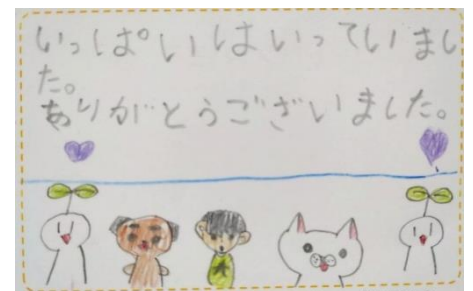 いっぱいはいっていまし
た。
ありがとうございました。